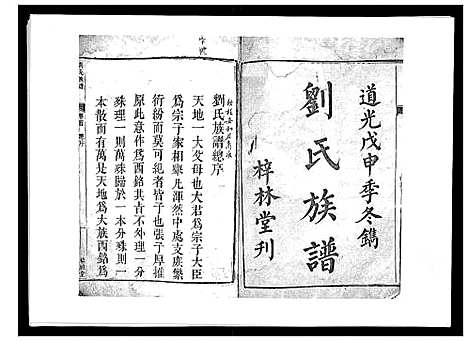 道光戊申季冬鐫
劉氏族譜
梓林堂刊
劉氏族譜總序
天地一大父母也大君為宗子大臣
為宗子家相舉凡渾然中處支庶繁
衍紛而莫可紀者皆子也張子厚推
原此意作為西銘其言不外理一分
殊理一則萬殊歸於一本分殊則一
本散而有萬殊是天地為大族西銘為